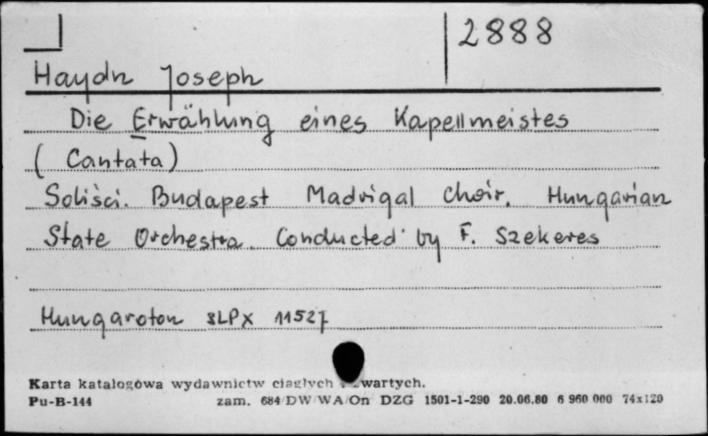 2888
Haydn Joseph
Die Erwählung eines Kapellmeistes
(Cantata)
Soliści. Budapest Madrigal Choir. Hungarian
State Orchestra. Conducted by F. Szekeres
Hungaroton SLPX 11527
Karta katalogowa wydawnictw ciągłych i zwartych.
Pu-B-144 zam. 684/DW/WA/On DZG 1501-1-290 20.06.80 6 960 000 74x120